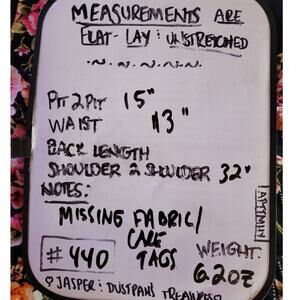 MEASUREMENTS ARE
FLAT-LAY: UNSTRETCHED
~.~.~.~.~
PIT 2 PIT 15"
WAIST 13"
BACK LENGTH
SHOULDER 2 SHOULDER 32"
NOTES:
MISSING FABRIC/
CARE
TAGS
#440
WEIGHT
6.2OZ
JASPER: DUSTPAN'S TREASURES